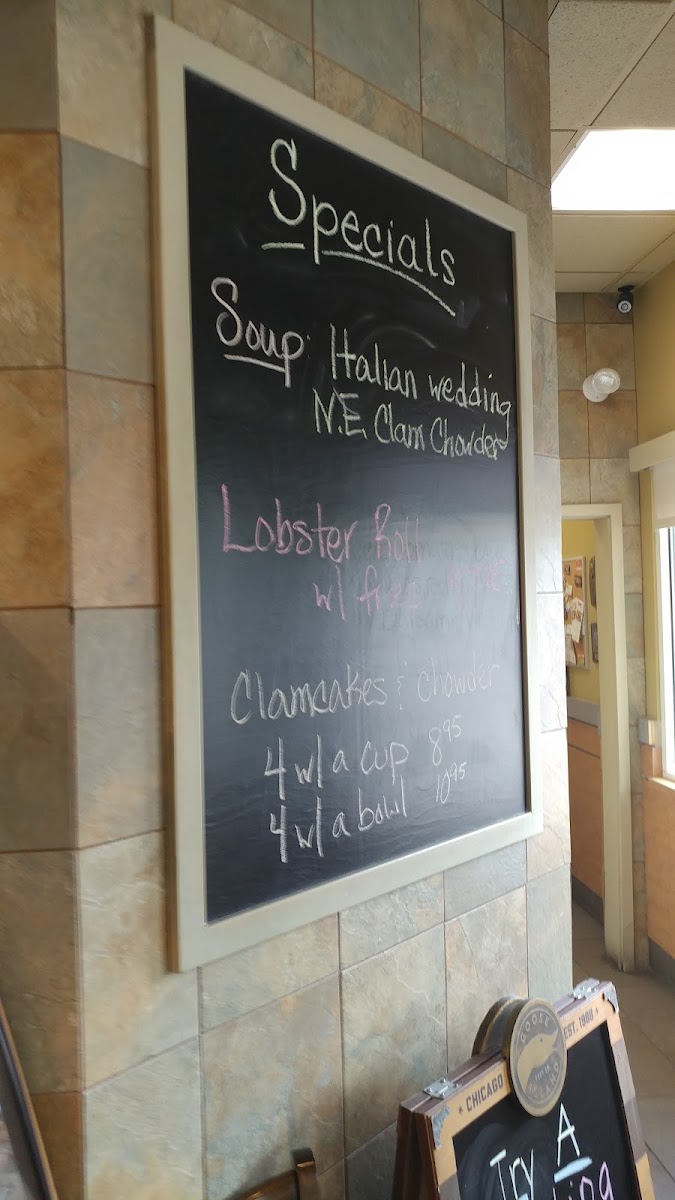 Specials
Soup: Italian wedding
N.E. Clam Chowder
Lobster Roll
w/ fries
Clamcakes & chowder
4 w/ a cup 8 95
4 w/ a bowl 10 95
GOOSE
ISLAND
CHICAGO
EST. 1988
Try A